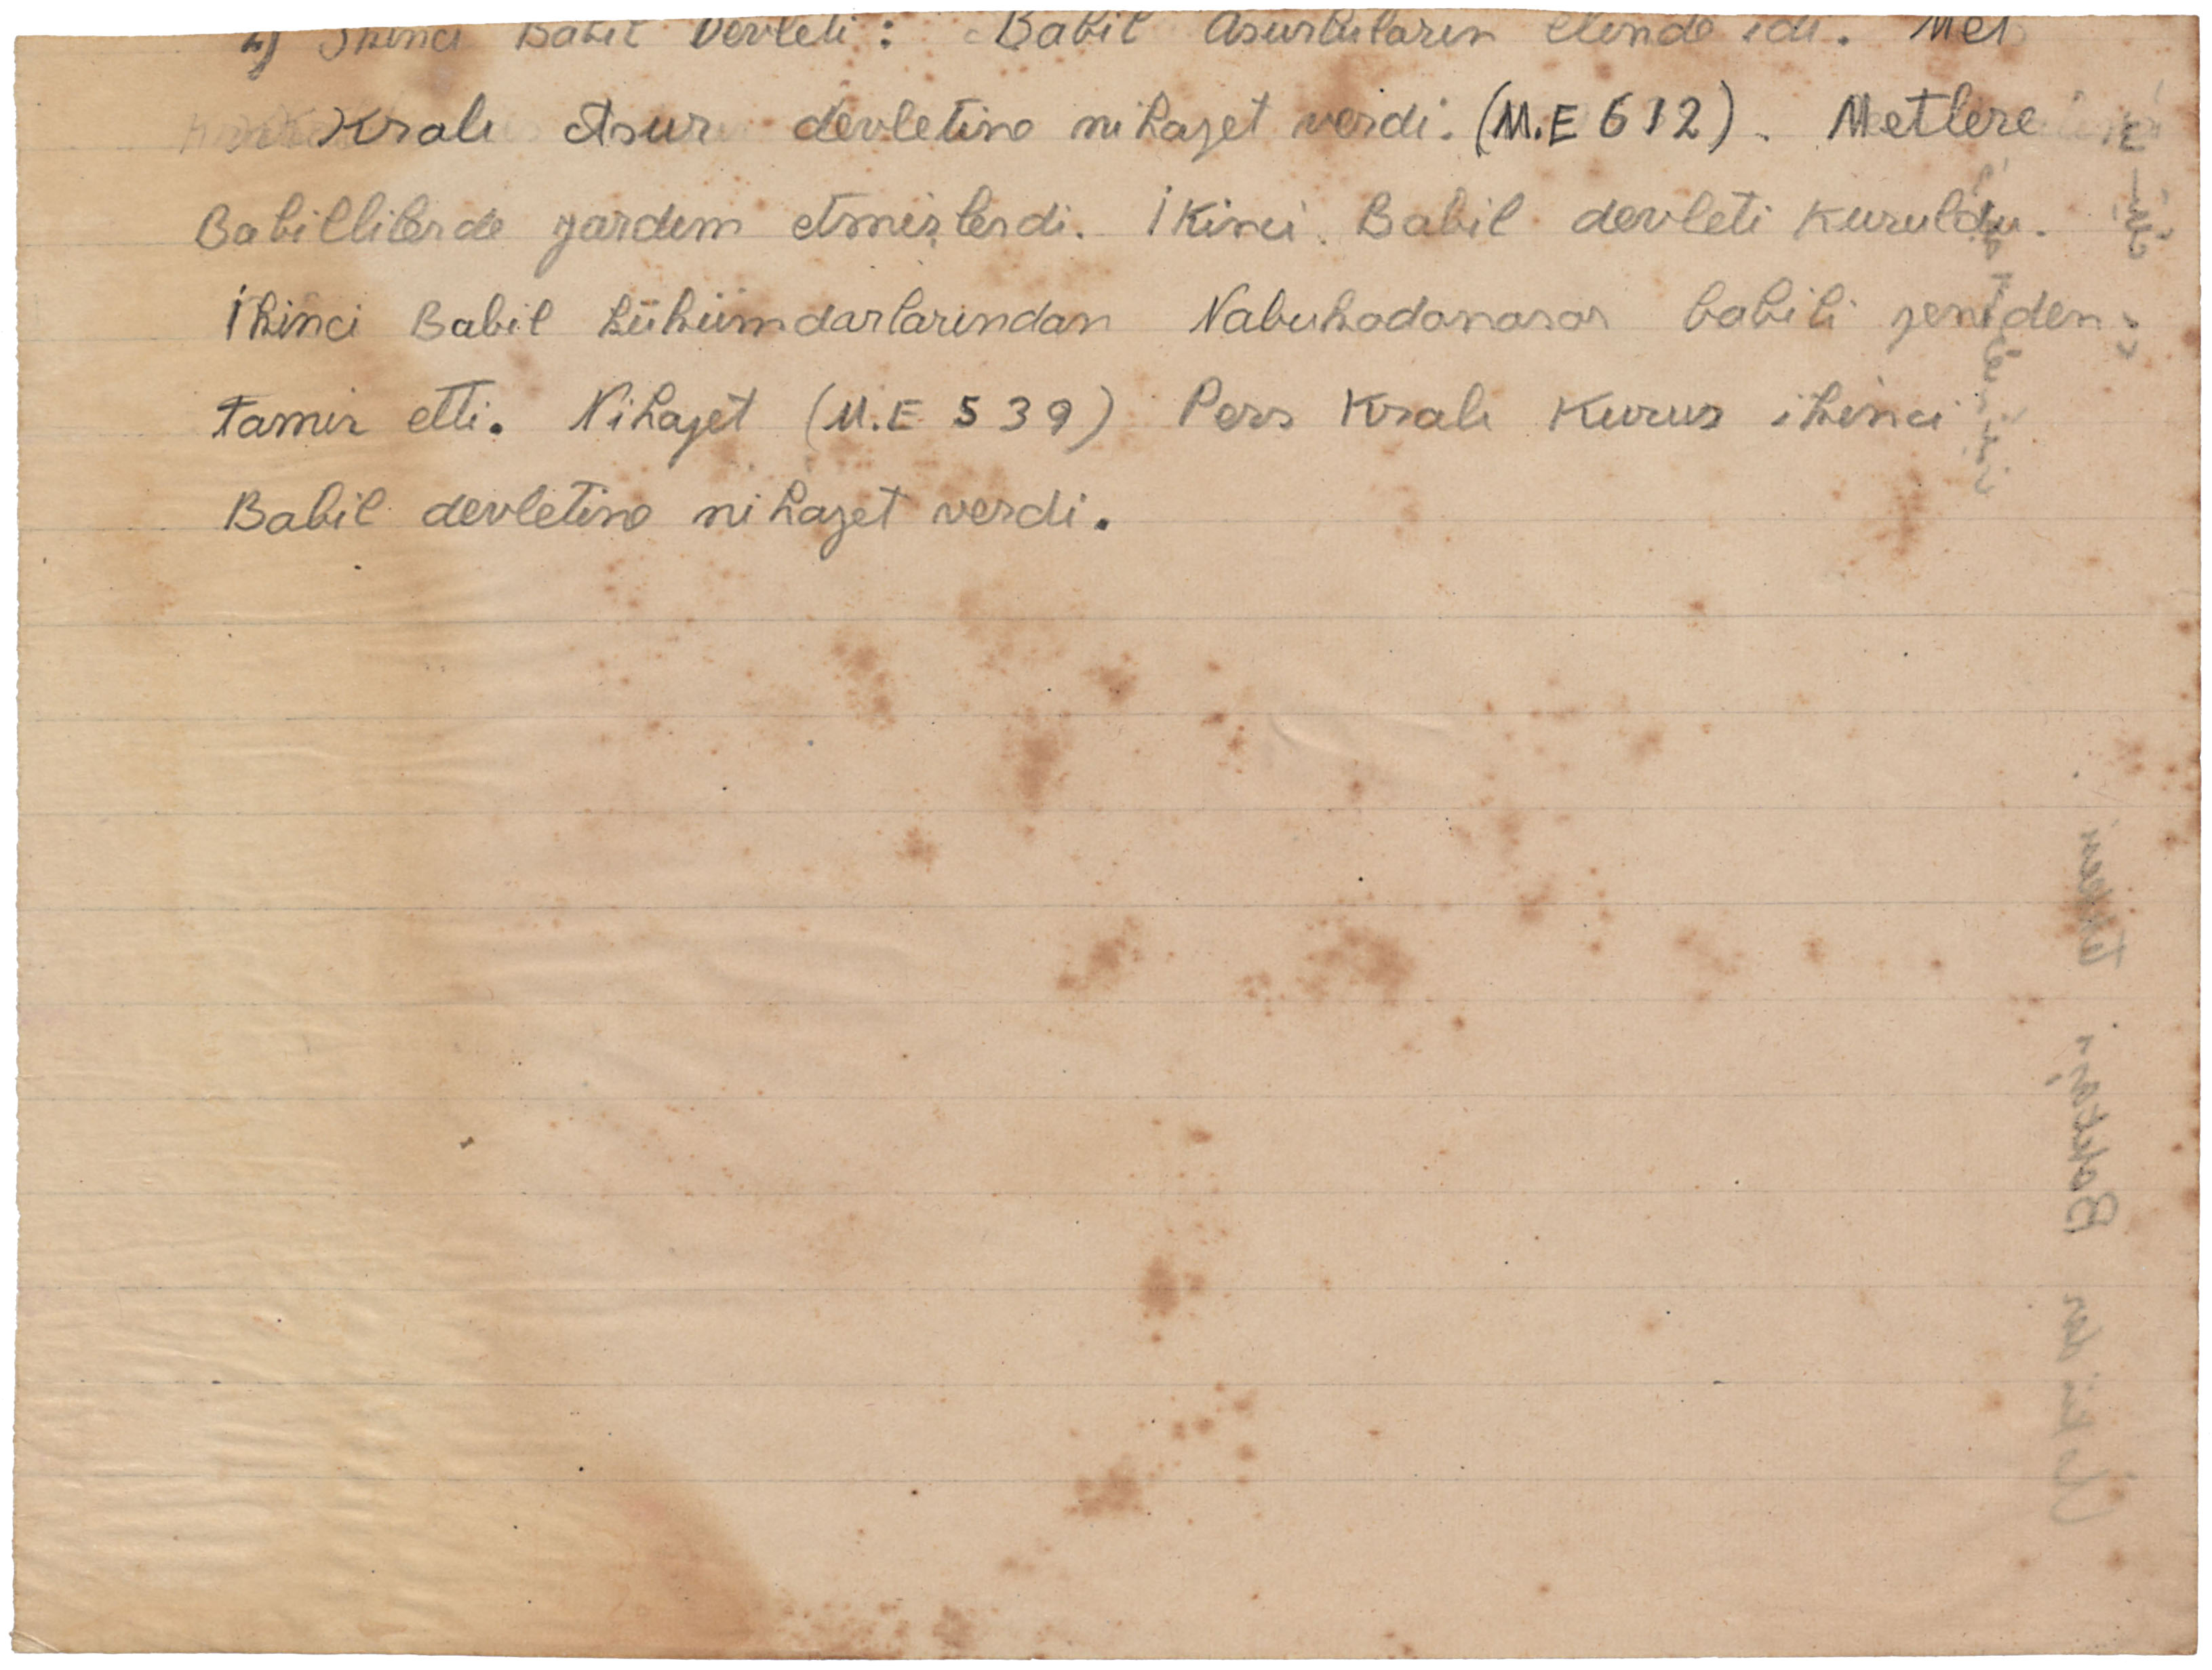 4) İkinci Babil Devleti: Babil Asurluların elinde idi. Met
Kralı Asur devletine nihayet verdi. (M.E 612). Metlere
Babillilerde yardım etmişlerdi. İkinci Babil devleti kuruldu.
İkinci Babil hükümdarlarından Nabukodonosor babili yeniden
tamir etti. Nihayet (M.E 539) Pers Kralı Kurus ikinci
Babil devletine nihayet verdi.